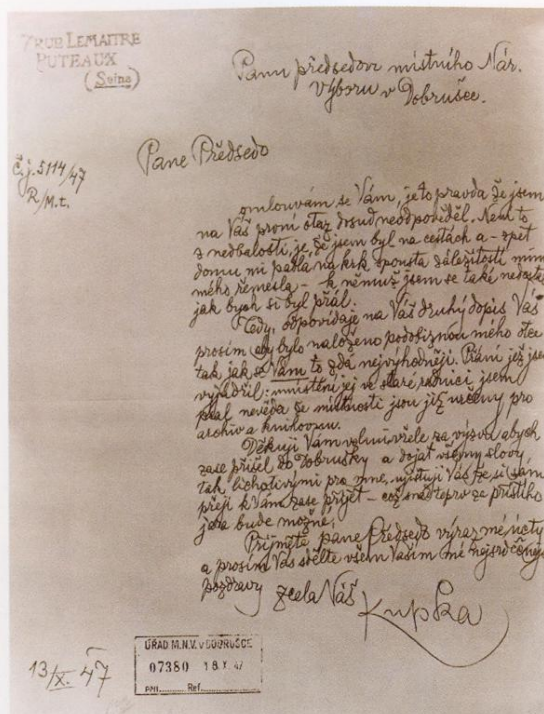 7 RUE LEMAITRE
PUTEAUX
(Seine)
Panu předsedovi místního Nár.
Výboru v Dobrušce.
Č.j. 5114/47
R/M.t.
Pane Předsedo
omlouvám se Vám, je to pravda že jsem
na Váš první otaz dosud neodpověděl. Není to
z nedbalosti, je, že jsem byl na cestách a - zpět
domu mi padla na krk spousta záležitostí mimo
mého řemesla - k němuž jsem se také nedostal
jak bych si byl přál.
Tedy, odpovídaje na Váš druhý dopis Vás
prosím aby bylo naloženo podobiznou mého otce
tak jak se Vám to zdá nejvýhodněji. Přání jež jsem
vyjádřil: umístění jej v staré radnici, jsem
psal nevěda že místnosti jsou již určeny pro
archiv a knihovnu.
Děkuji Vám velmi vřele za výzvu abych
zase přišel do Dobrušky a dojat všemy slovy
tak lichotivými pro mne, ujištuji Vás že si sám
přeji k Vám zase přijet - což snad teprv ze příštího
jara bude možné.
Přijměte pane Předsedo výraz mé úcty
a prosím Vás sdělte všem Vašim mé nejsrdečnější
pozdravy zcela Váš
Kupka
13/X. 47
ÚŘAD M.N.V. v DOBRUŠCE
07380 18 X. 47
Příl. Ref.